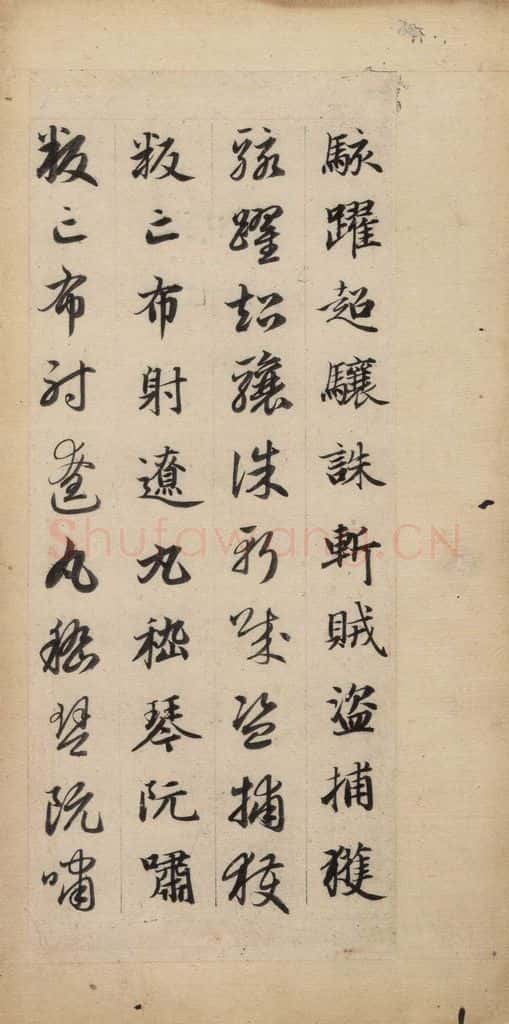 駭躍超驤誅斬賊盜捕獲
駭躍超驤誅斬賊盜捕獲
叛亡布射遼丸嵇琴阮嘯
叛亡布射遼丸嵇琴阮嘯
Shufawang.CN